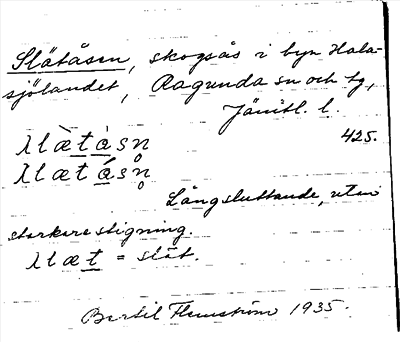 Slätåsen, skogsås i byn Hala-
sjölandet, Ragunda sn och tg,
Jämtl. l.
425.
Långsluttande, utan
starkare stigning.
= slät.
Bertil Flemström 1935.